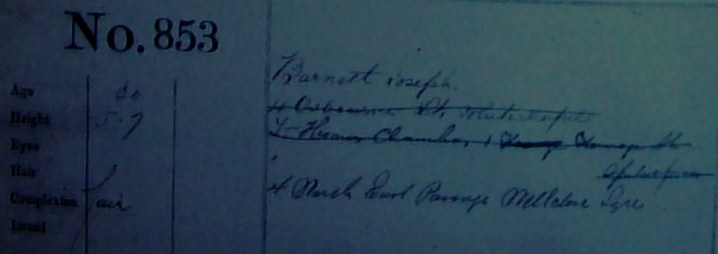 No. 853
Barnett Joseph.
Age 30
4 Osbourne St. Whitechapel
Height 5-7
Chambers 1 Thrawl St
Eyes
Hair
Spitalfields
Complexion Fair
4 North East Passage Wellclose Sqre
Issued